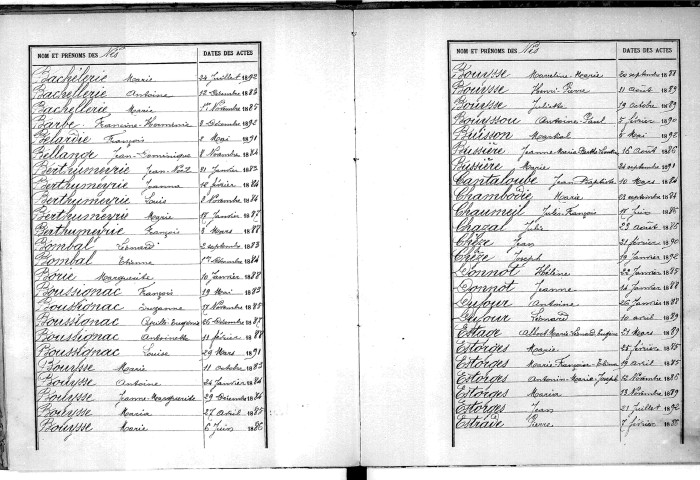 NOM ET PRÉNOMS DES Nés DATES DES ACTES
Bachélerie Marie 24 Juillet 1892
Bachellerie Antoine 12 Décembre 1883
Bachellerie Marie 1er Novembre 1885
Barbe Francine Hermenie 8 Décembre 1892
Belardie François 2 Mai 1891
Bellange Jean-Dominique 8 Novembre 1884
Berthumeyrie Jean-Noël 21 Janvier 1883
Berthumeyrie Jeanne 12 février 1884
Berthumeyrie Louis 2 Novembre 1884
Berthumeyrie Marie 17 Janvier 1885
Berthumeyrie François 8 Mars 1888
Bombal Léonard 2 septembre 1883
Bombal Etienne 1er Décembre 1884
Borie Marguerite 10 Janvier 1888
Boussignac François 19 Mai 1883
Boussignac Suzanne 17 Novembre 1885
Boussignac Eugénie 26 Décembre 1887
Boussignac Antoinette 11 février 1888
Boussignac Louise 29 Mars 1891
Bouysse Marie 11 octobre 1883
Bouysse Antoine 24 Janvier 1884
Bouysse Jeanne-Marguerite 29 Décembre 1884
Bouysse Maria 27 avril 1885
Bouysse Marie 6 Juin 1886
NOM ET PRÉNOMS DES Nés DATES DES ACTES
Bouysse Marceline-Marie 20 septembre 1888
Bouysse Henri-Pierre 11 août 1889
Bouysse Juliette 19 octobre 1889
Bouyssou Antoine-Paul 5 février 1890
Buisson Martial 5 Mai 1892
Bussière Jeanne-Marie-Berthe 16 Août 1886
Bussière Marie 24 septembre 1891
Cantaloube Jean Baptiste 10 Mars 1884
Chambodie Marie 03 septembre 1884
Chaumeil Jules-François 17 Juin 1886
Chazal Julie 23 août 1886
Chèze Jean 21 février 1890
Chèze Joseph 19 Janvier 1892
Donnot Hélène 22 Janvier 1885
Donnot Jeanne 14 Janvier 1888
Dufour Antoine 26 Janvier 1888
Dufour Léonard 10 avril 1889
Estage Albert Marie Léonard Eugène 21 Mars 1889
Estorges Marie 25 février 1885
Estorges Marie-Françoise-Elina 19 avril 1885
Estorges Antonin-Marie-Joseph 12 Novembre 1886
Estorges Maria 13 Novembre 1889
Estorges Jean 21 Juillet 1892
Estrade Pierre 7 février 1886